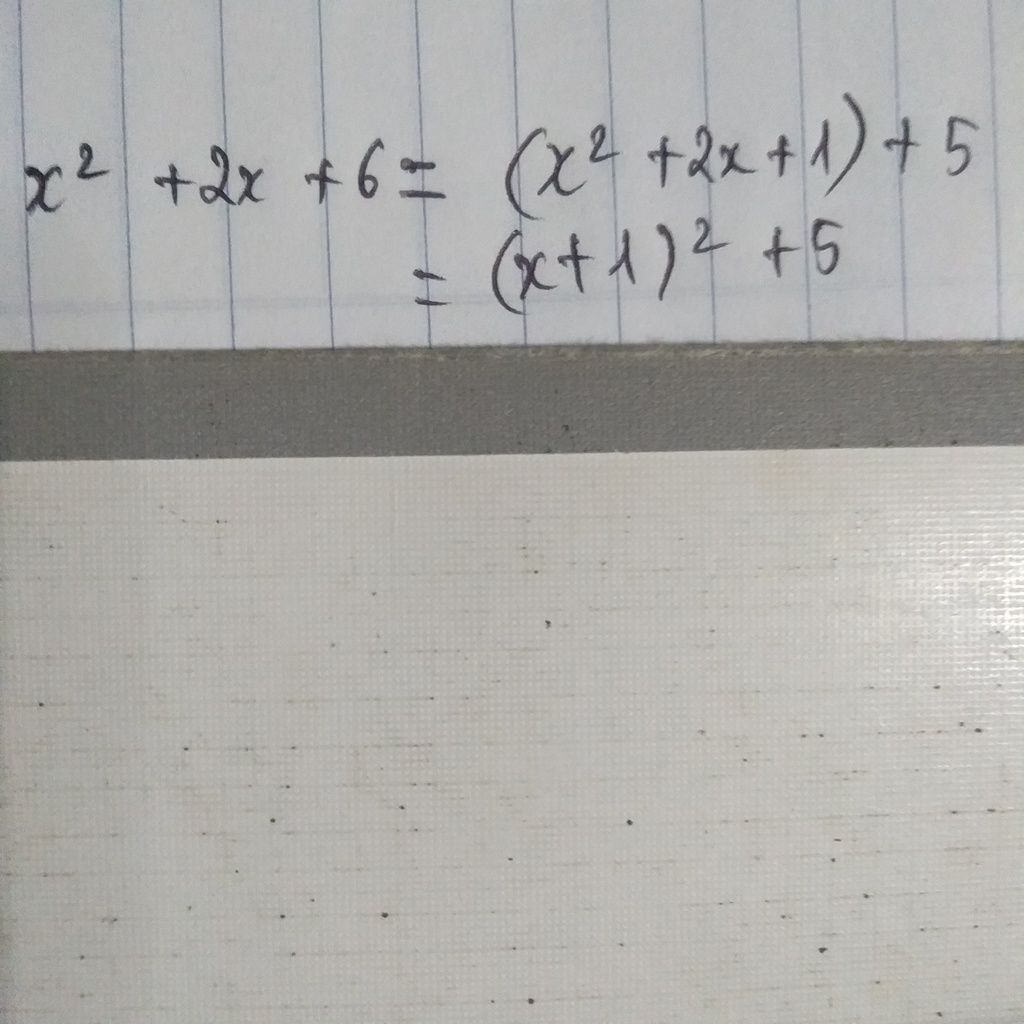 x² +2x +6 = (x² +2x+1)+5
= (x+1)² +5